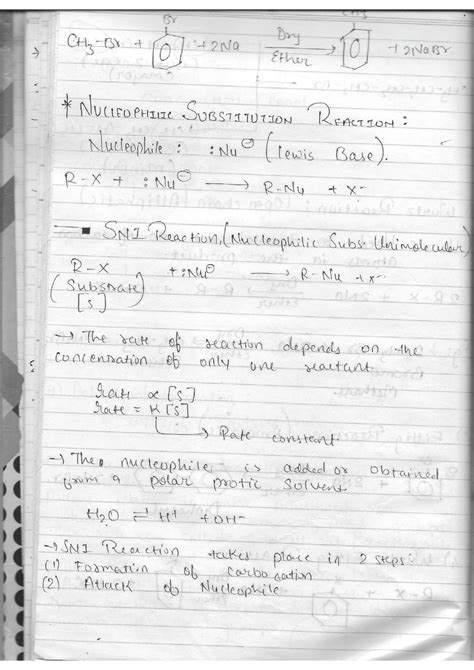 Br CH3
CH3-Br + + 2Na Dry Ether + 2NaBr
* NUCLEOPHILIC SUBSTITUTION REACTION :
Nucleophile : :Nu⊖ (lewis Base).
R-X + :Nu⊖ → R-Nu + X-
SN1 Reaction, (Nucleophilic Subs. Unimolecular)
R-X + :Nu⊖ → R-Nu + X-
(Substrate)
[S]
→ The rate of reaction depends on the
concentration of only one reactant.
rate ∝ [S]
rate = K [S]
→ Rate constant
→ The nucleophile is added or obtained
from a polar protic solvent.
H2O ⇌ H+ + OH-
→ SN1 Reaction takes place in 2 steps:
(1) Formation of carbocation
(2) Attack of Nucleophile